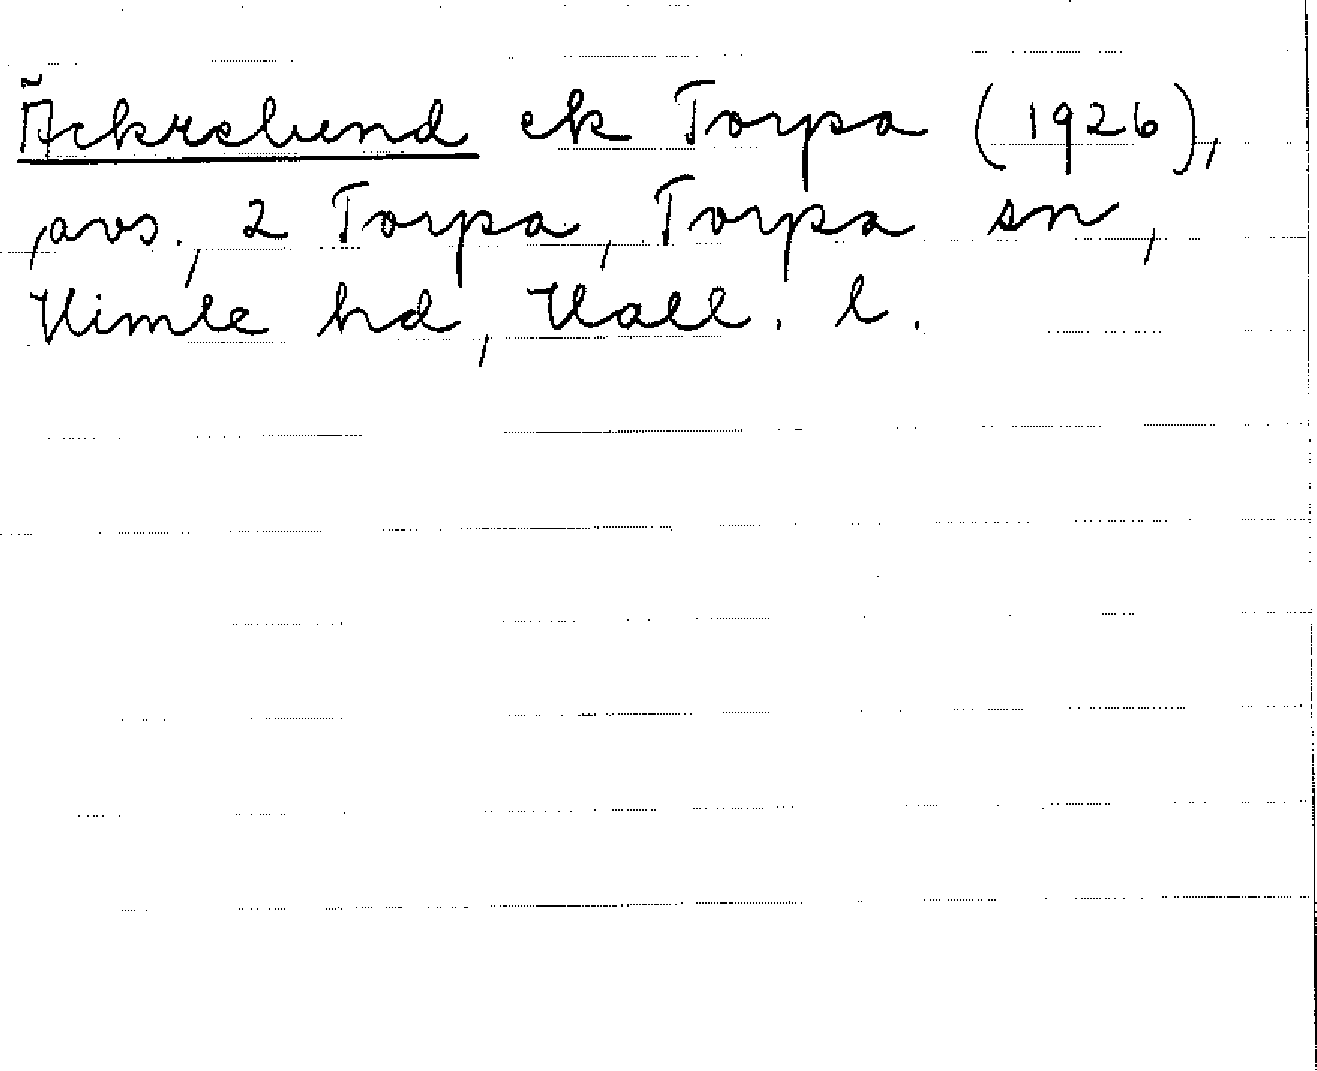 Äckrelund ek Torpa (1926),
avs., 2 Torpa, Torpa sn,
Himle hd, Hall. l.